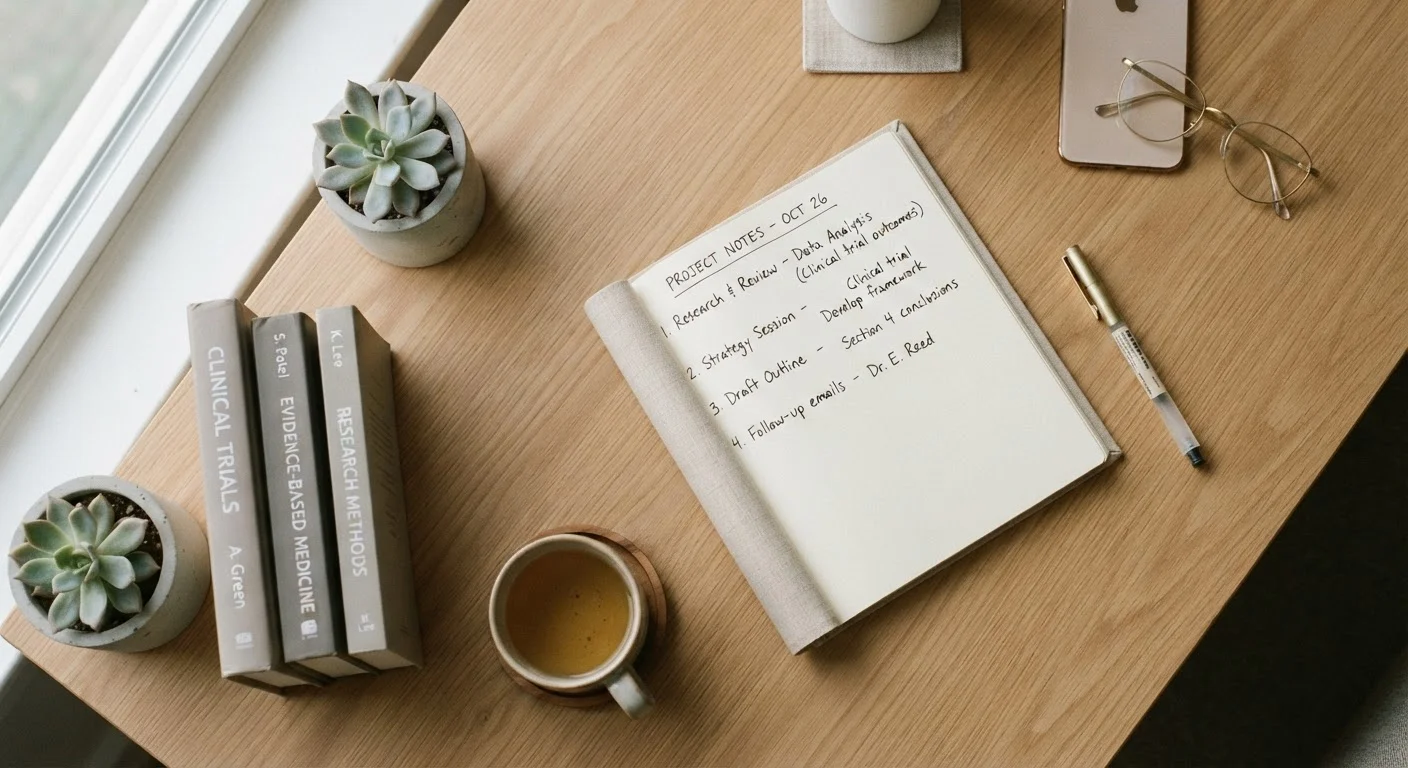 PROJECT NOTES - OCT 26
1. Research & Review - Data Analysis
(Clinical trial outcomes)
2. Strategy Session - Clinical trial
Develop framework
3. Draft Outline - Section 4 conclusions
4. Follow-up emails - Dr. E. Reed
CLINICAL TRIALS A. Green
S. Patel EVIDENCE-BASED MEDICINE
K. Lee RESEARCH METHODS